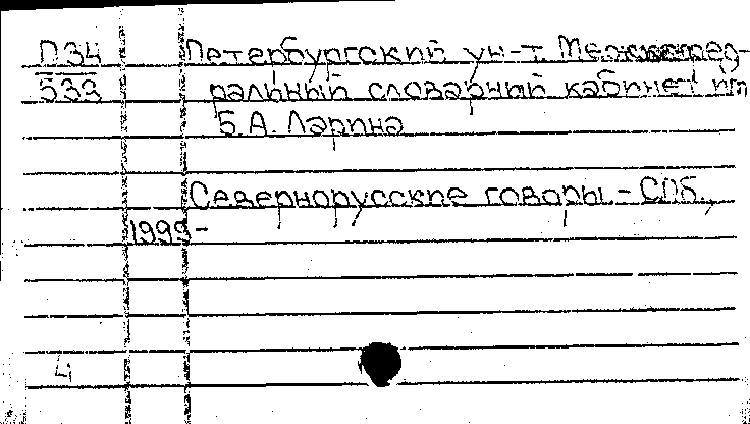 П34 Петербургский ун-т. Межкафед-
533 ральный словарный кабинет им
Б.А. Ларина
Севернорусские говоры - СПб.,
1999-
4